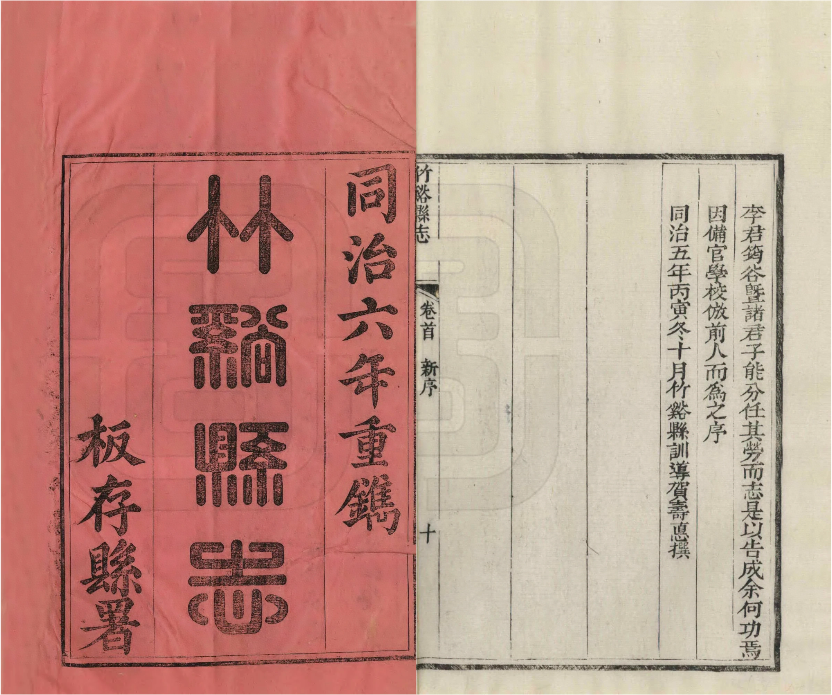 李君筠谷暨諸君子能分任其勞而志是以告成余何功焉
因備官學校倣前人而為之序
同治五年丙寅冬十月竹谿縣訓導賀壽慝撰
竹谿縣志
卷首 新序
十
同治六年重鐫
竹谿縣志
板存縣署